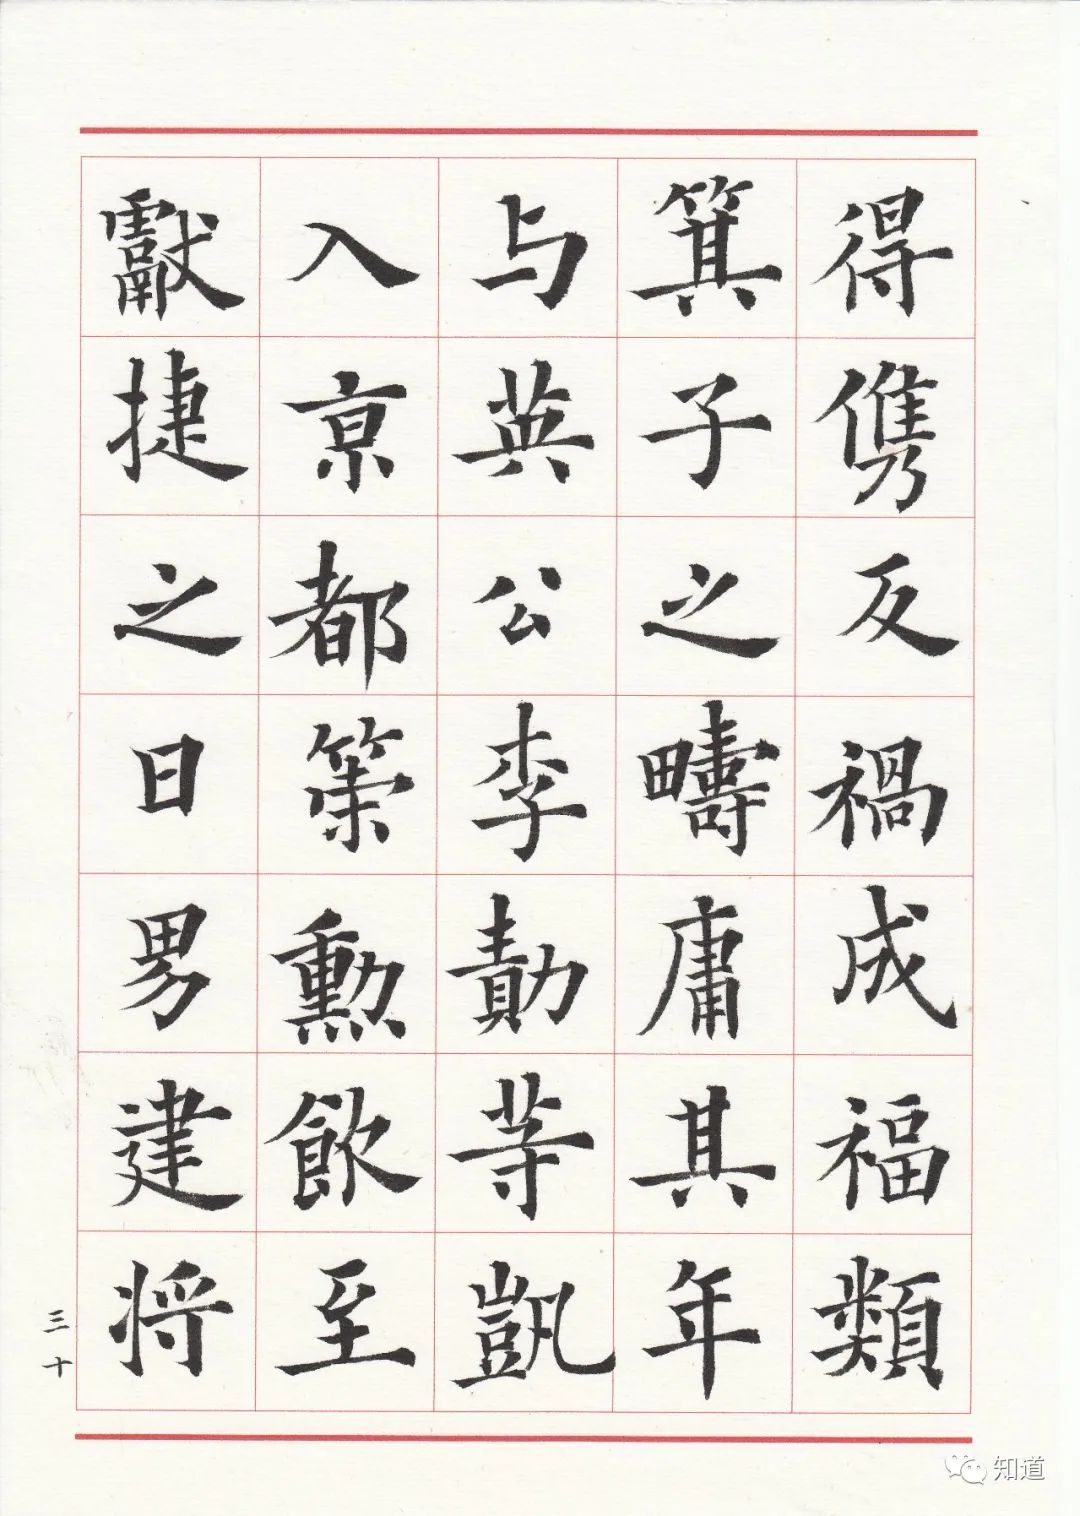 得儁反禍成福類
箕子之疇庸其年
与英公李勣等凱
入京都策勳飲至
獻捷之日男建将
三十
知道